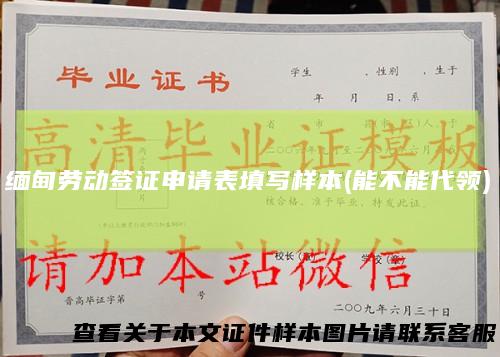 毕业证书
学生 ，性别 ，生于
年 月 日，系
高清毕业证模板
缅甸劳动签证申请表填写样本(能不能代领)
核合格，准予毕业，特发此证。
校长(章) 学校(章)
请加本站微信
晋高毕证字第 号
二〇〇九年六月三十日
查看关于本文证件样本图片请联系客服